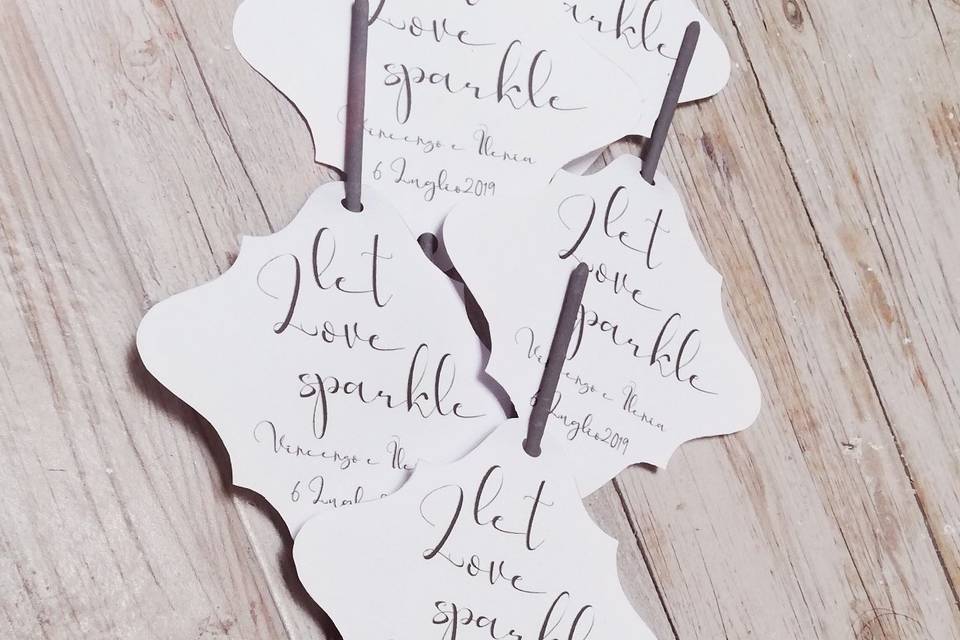 Love
sparkle
Vincenzo e Ilenia
6 Luglio2019
sparkle
let
Love
sparkle
Vincenzo e Ilenia
6 Luglio2019
let
Love
sparkle
Vincenzo e
6
let
Love
sparkle